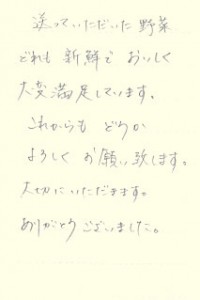 送っていただいた野菜
どれも新鮮でおいしく
大変満足しています。
これからもどうか
よろしくお願い致します。
大切にいただきます。
ありがとうございました。